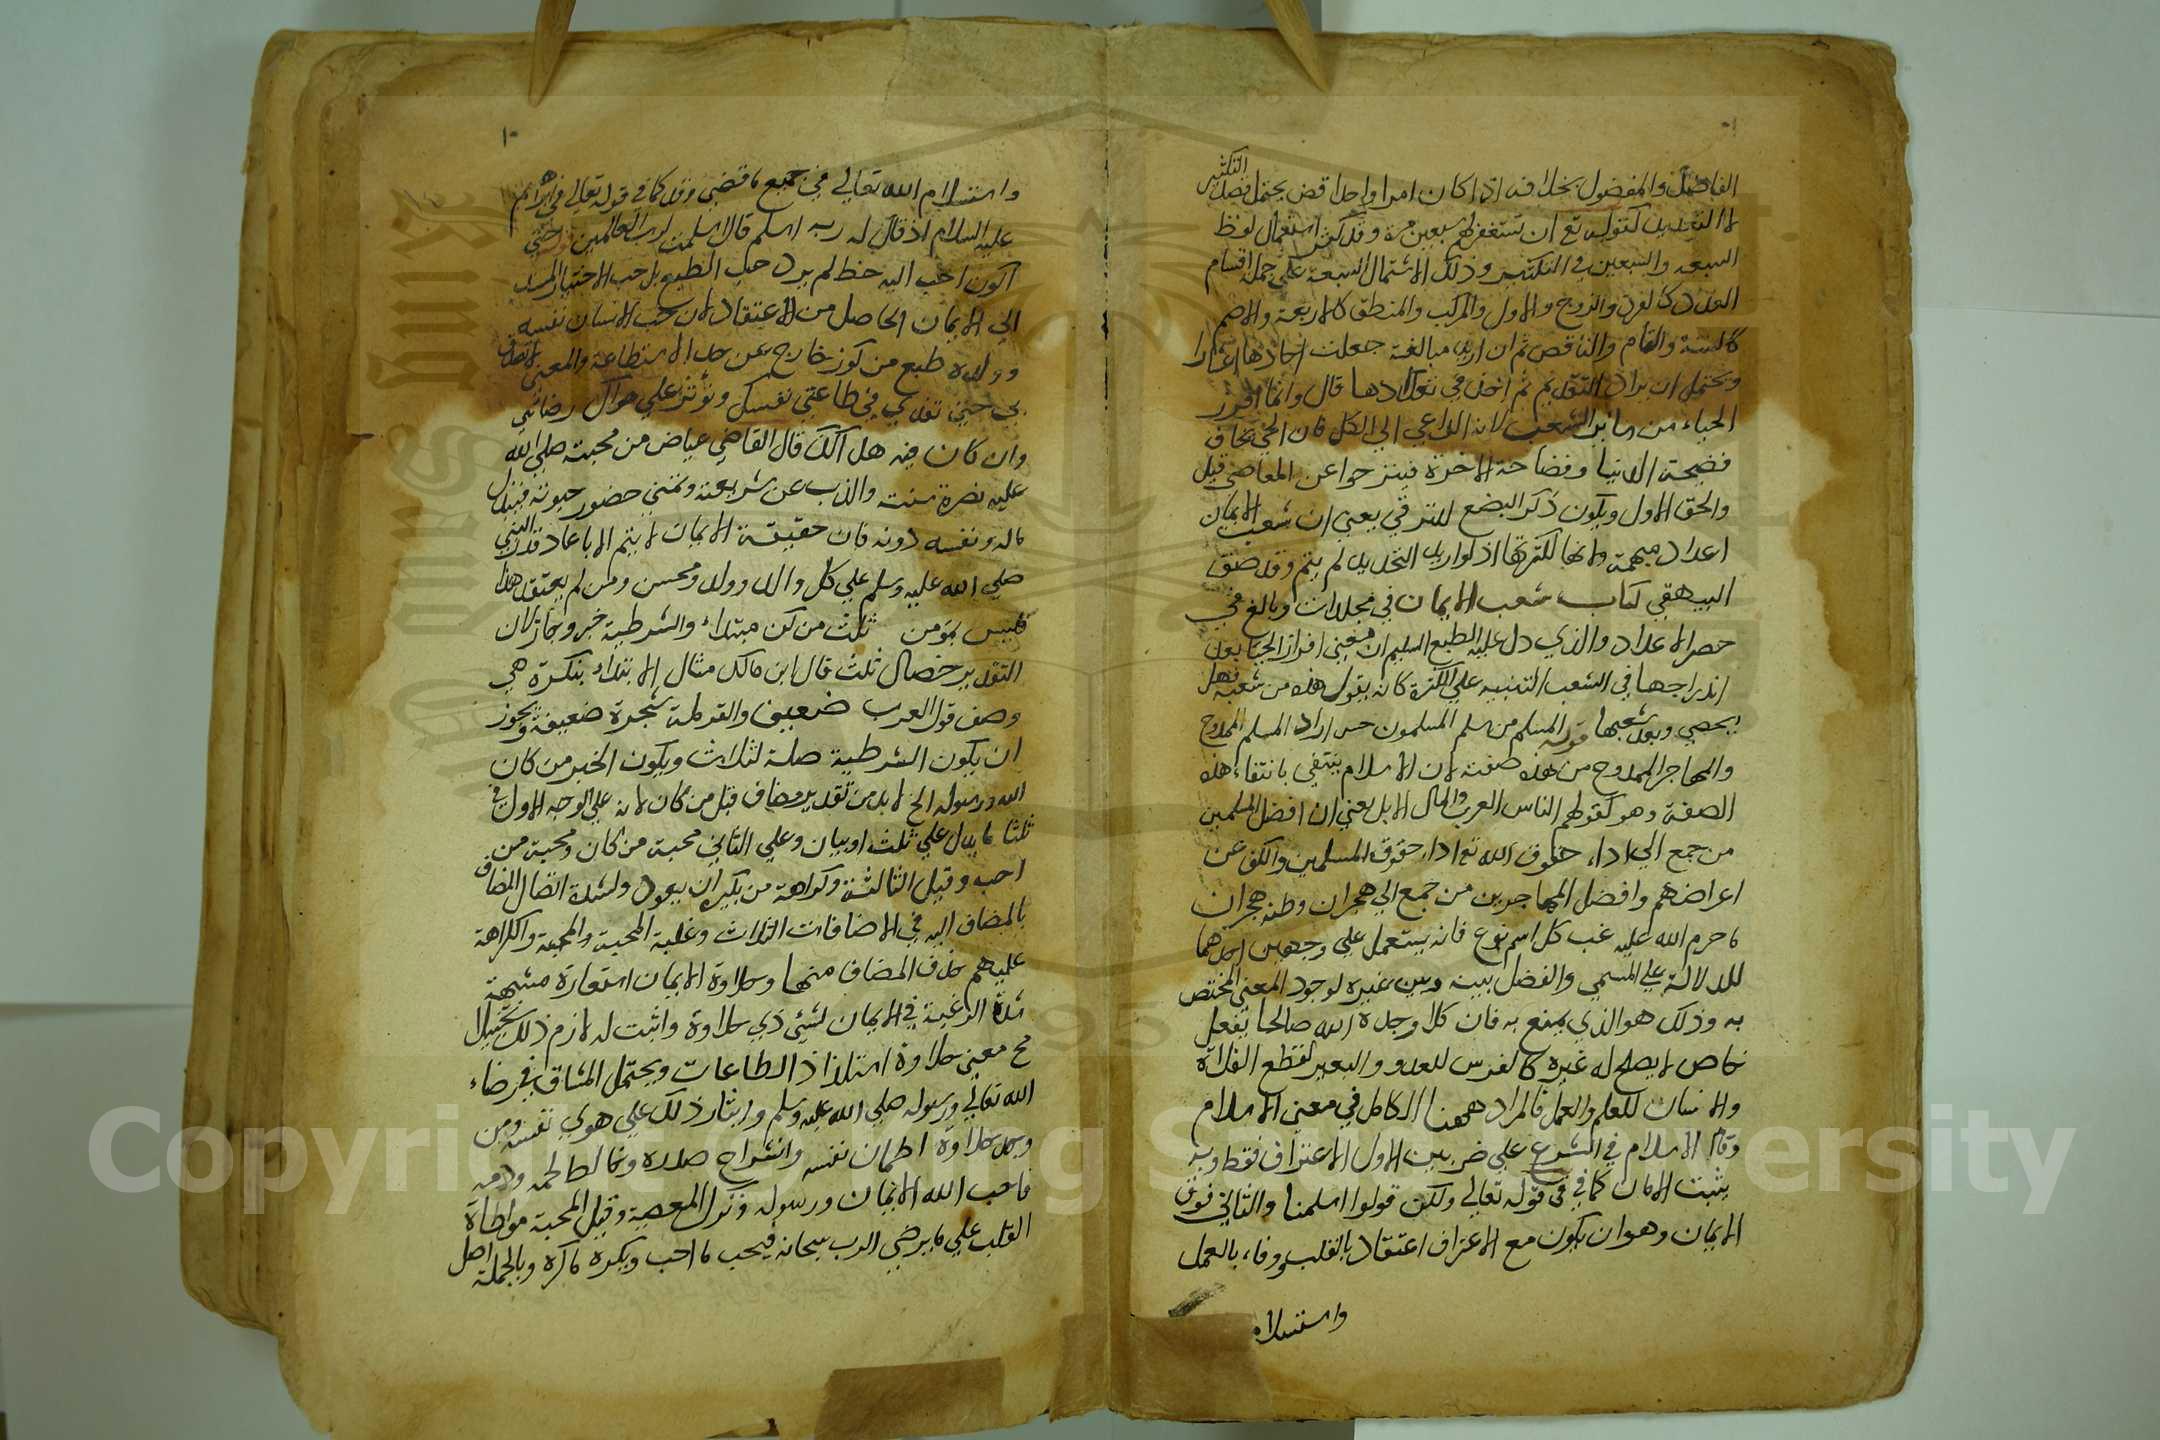 الفاضل والمفضول بخلافه اذا كان امرا واحدا قض يحتمل فصل التكثير
لا التعديد كقوله تع ان تستغفر لهم سبعين مرة وقد كثر استعمال لفظ
السبعه والسبعين في التكثير وذلك لاشتمال السبعة على جملة اقسام
العدد كالفرد والزوج والاول والمركب والمنطق كالاربعة والاصم
كالستة والتام والناقص ثم ان اريد مبالغة جعلت احادها اعشارا
ويحتمل ان يراد التقديم ثم اخذ في تعدادها قال وانما افرز
الحياء من سائر الشعب لانه الداعي الي الكل فان الحي يخاف
فضيحة الدنيا وفضاحة الاخرة فينزجر عن المعاصي قيل
والحق الاول ويكون ذكر البضع للترقي يعني ان شعب الايمان
اعداد مبهمة وانها لكثرتها اذ لو اريد التحديد لم يتم وقد صنف
البيهقي كتاب شعب الايمان في مجلدات وبالغ في
حصر الاعداد والذي دل عليه الطبع السليم ان معنى افراز الحيا بعد
اندراجها في الشعب التنبيه علي الكثرة كانه يقول هذه من شعبه فهل
يحصي ويعد شعبها قوله المسلم من سلم المسلمون حس اراد المسلم الممدوح
والمهاجر الممدوح من هذه صفته لان الاسلام ينتفي بانتفاء هذه
الصفة وهو كقولهم الناس العرب والمال الابل يعني ان افضل المسلمين
من جمع الي اداء حقوق الله تع اداء حقوق المسلمين والكف عن
اعراضهم وافضل المهاجرين من جمع الي هجران وطنه هجران
ما حرم الله عليه غب كل اسم نوع فانه يستعمل علي وجهين احدهما
للدلالة علي المسمي والفضل بينه وبين غيره لوجود المعني المختص
به وذلك هو الذي يمنع به فان كلا وجده الله صالحا لفعل
خاص لا يصلح له غيره كالفرس للعدو والبعير لقطع الفلاة
والانسان للعلم والعمل فالمراد ههنا الكامل في معنى الاسلام
وقال الاسلام في الشرع علي ضربين الاول الاعتراف فقط وبه
يثبت الامان كما في قوله تعالي ولكن قولوا اسلمنا والثاني فوق
الايمان وهو ان يكون مع الاعتراف اعتقاد بالقلب ووفاء بالعمل
واستسلام
١٠
واستسلام الله تعالي في جميع ما قضي وقدر كما في قوله تعالي في ابراهيم
عليه السلام اذ قال له ربه اسلم قال اسلمت لرب العالمين حتي
اكون احب اليه خط لم يرد حب الطبع بل حب الاختيار المستند
الي الايمان الحاصل من الاعتقاد لان حب الانسان نفسه
وولده طبع مركوز خارج عن حد الاستطاعة والمعنى لا تصدق
بي حتي تفدي في طاعتي نفسك وتؤثر علي هواك رضائي
وان كان فيه هلاكك قال القاضي عياض من محبته صلي الله
عليه نصرة سنته والذب عن شريعته وتمني حضور حيوته فيبذل
ماله ونفسه دونه فان حقيقة الايمان لا يتم الا باعلاء قدر النبي
صلي الله عليه وسلم علي كل والد وولد ومحسن ومن لم يعتقد هذا
فليس بمومن ثلث من كن مبتداء والشرطية خبر وجاز لان
التقدير خصال ثلث قال ابن مالك مثال الابتداء بنكرة هي
وصف قول العرب ضعيف والقرملة شجرة ضعيفة ويجوز
ان يكون الشرطية صلة لثلاث ويكون الخبر من كان
الله ورسوله الخ لا بد من تقدير مضاف قبل من كان لانه علي الوجه الاول في
ثلثا ما يدل علي ثلث او بيان وعلي الثاني محبة من كان ومحبة من
احب وقيل الثالثة وكراهة من يكره ان يعود ولشدة اتصال المضاف
بالمضاف اليه في الاضافات الثلاث وغلبة المحبة والكراهة
عليهم حذف المضاف منها وحلاوة الايمان استعارة مشبهة
شدة الرغبة في الايمان لشئ ذي حلاوة واثبت له لازم ذلك تخييل
مح معنى حلاوة استلذاذ الطاعات ويحتمل المشاق في رضاء
الله تعالي ورسوله صلي الله عليه وسلم وايثار ذلك علي هوي نفسه ومن
وجد حلاوة اطمان نفسه وانشراح صدره وخالط لحمه ودمه
فاحب الله الايمان ورسوله وترك المعصية وقيل المحبة مواطاة
القلب علي ما يرضي الرب سبحانه فيحب ما احب ويكره ما كره وبالجملة اصل
Copyright © King Saud University